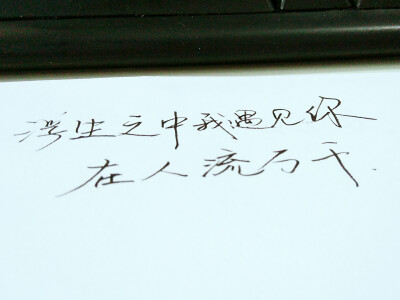 浮生之中我遇见你
在人流万千.